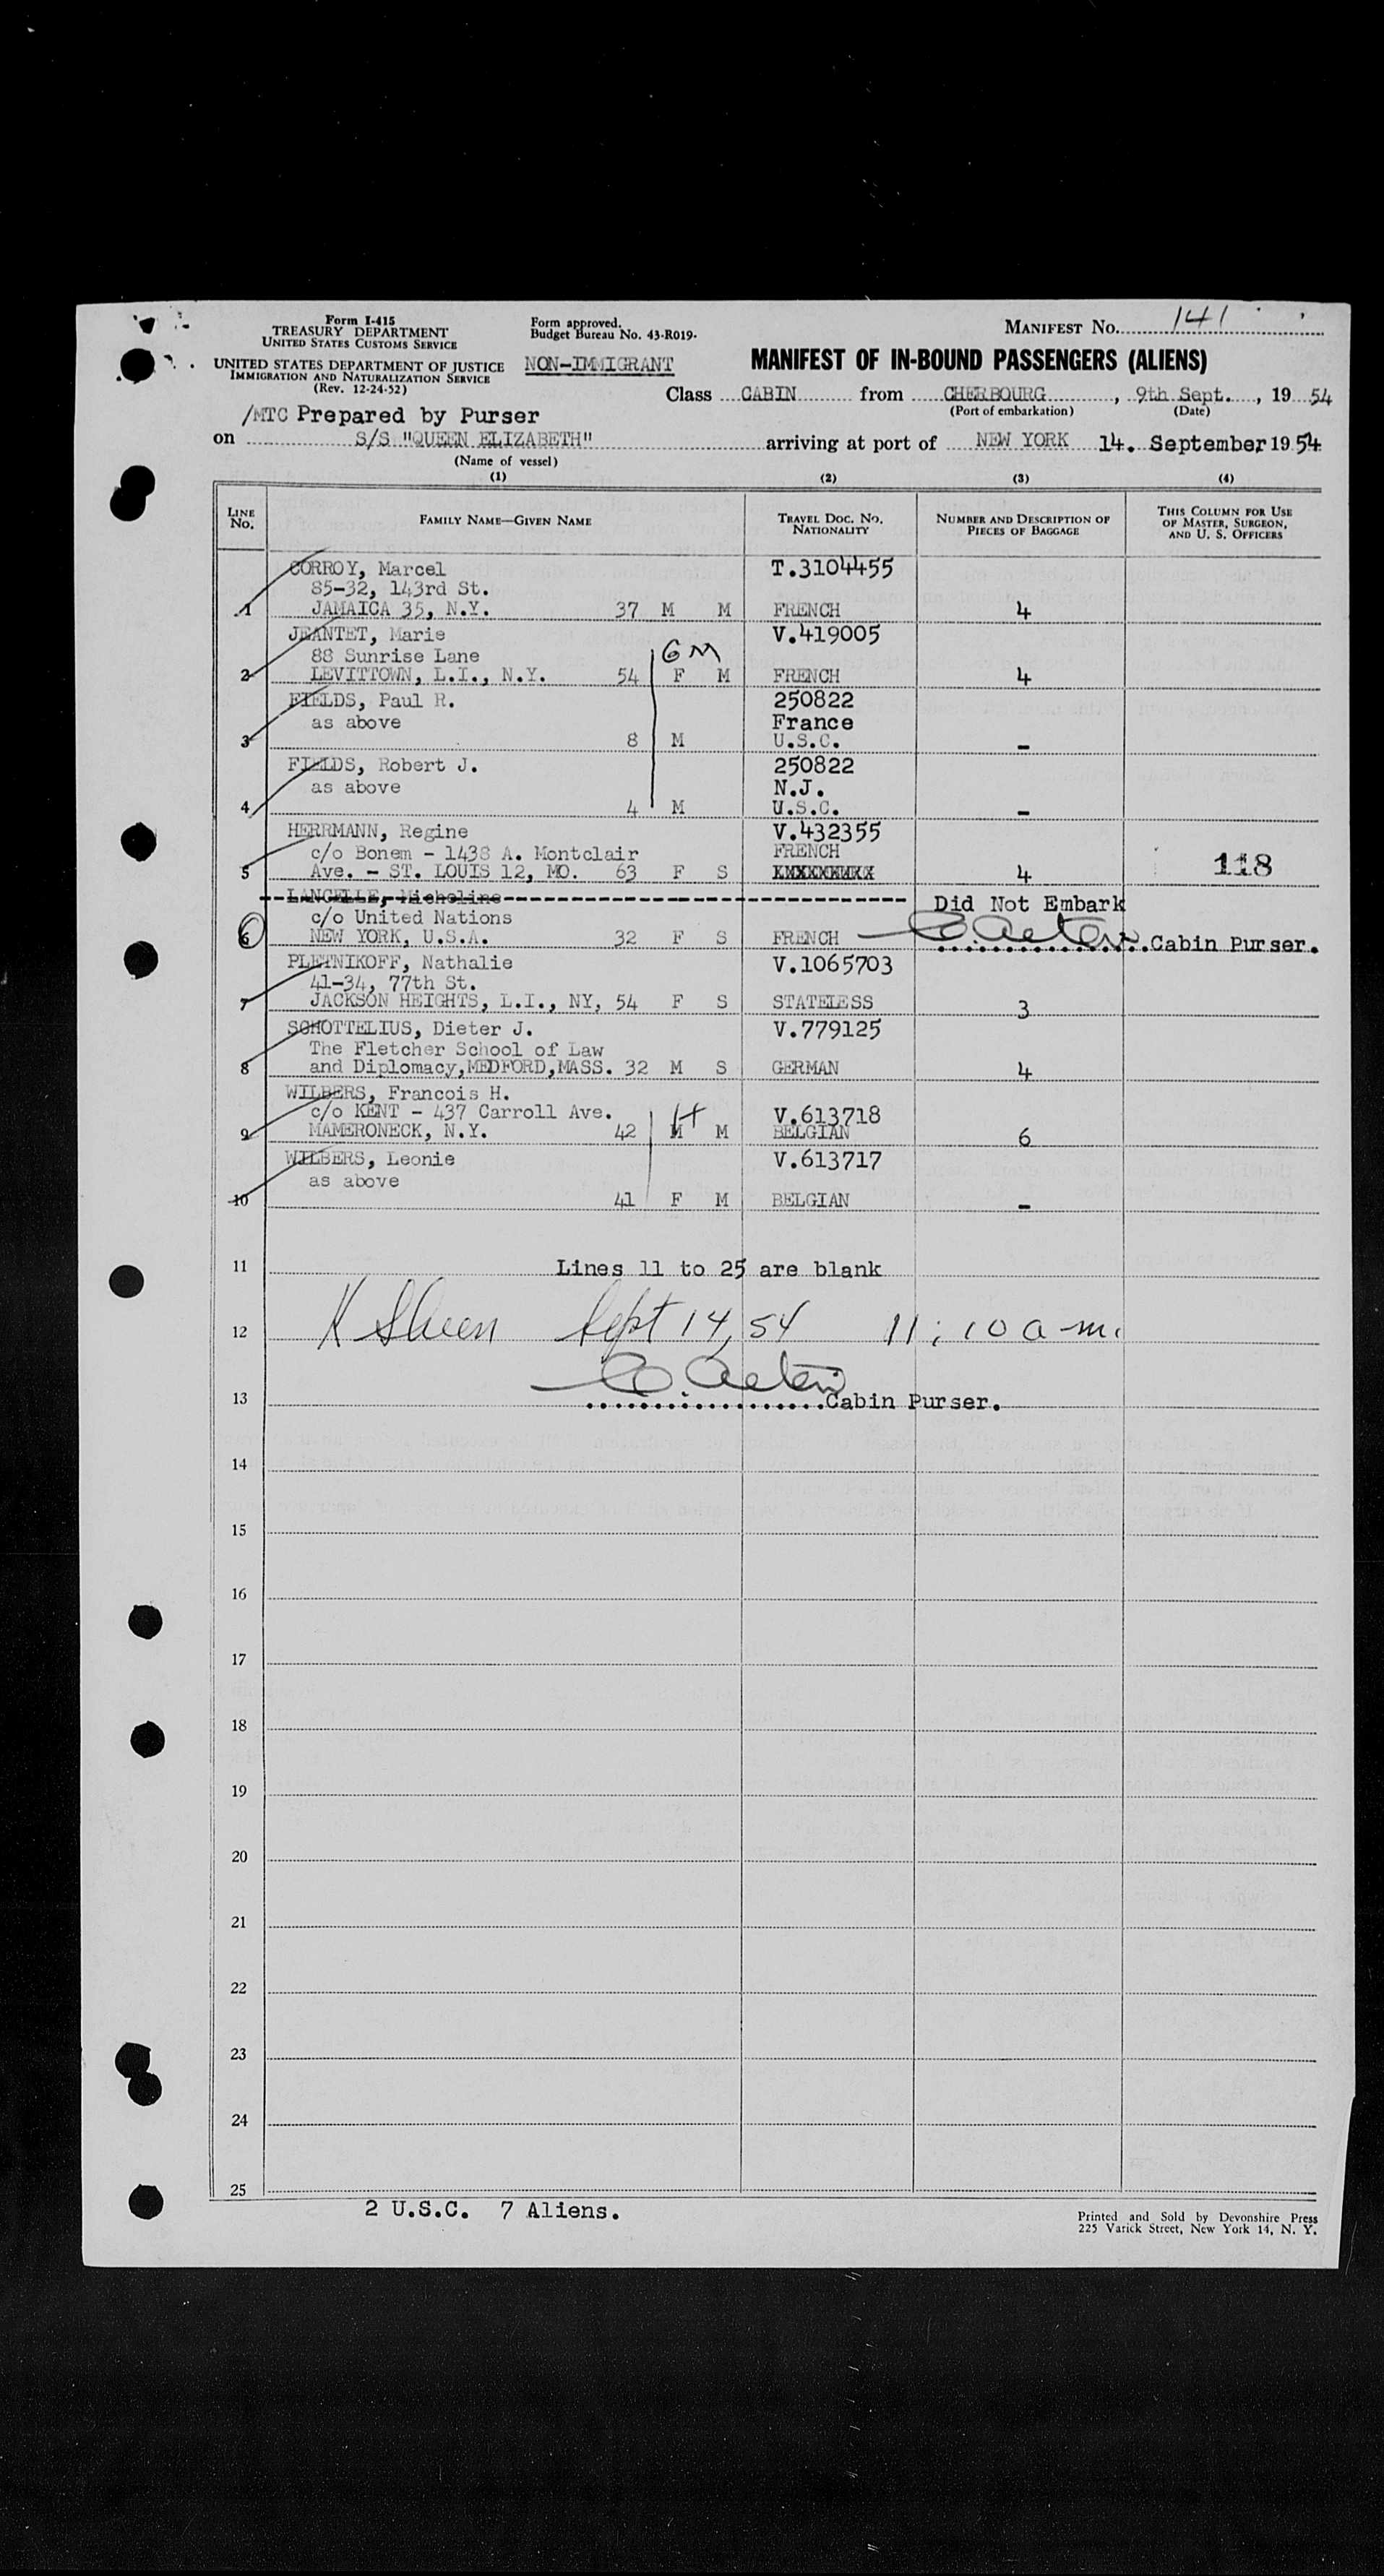 Form I-415
TREASURY DEPARTMENT
UNITED STATES CUSTOMS SERVICE
UNITED STATES DEPARTMENT OF JUSTICE
IMMIGRATION AND NATURALIZATION SERVICE
(Rev. 12-24-52)
Form approved.
Budget Bureau No. 43-R019.
NON-IMMIGRANT
MANIFEST NO. 141
MANIFEST OF IN-BOUND PASSENGERS (ALIENS)
Class CABIN from CHERBOURG, 9th Sept., 19 54
(Port of embarkation) (Date)
/MTC Prepared by Purser
on S/S "QUEEN ELIZABETH" arriving at port of NEW YORK 14. September 19 54
(Name of vessel)
(1) (2) (3) (4)
LINE NO. FAMILY NAME—GIVEN NAME TRAVEL DOC. NO. NATIONALITY NUMBER AND DESCRIPTION OF PIECES OF BAGGAGE THIS COLUMN FOR USE OF MASTER, SURGEON, AND U. S. OFFICERS
CORROY, Marcel T.3104455
85-32, 143rd St.
1 JAMAICA 35, N.Y. 37 M M FRENCH 4
JEANTET, Marie V.419005
88 Sunrise Lane GM
2 LEVITTOWN, L.I., N.Y. 54 F M FRENCH 4
FIELDS, Paul R. 250822
as above France
3 8 M U.S.C. -
FIELDS, Robert J. 250822
as above N.J.
4 4 M U.S.C. -
HERRMANN, Regine V.432355
c/o Bonem - 1438 A. Montclair FRENCH
5 Ave. - ST. LOUIS 12, MO. 63 F S 4 118
LANCELLE, Micheline Did Not Embark
c/o United Nations
6 NEW YORK, U.S.A. 32 F S FRENCH Cabin Purser.
PLETNIKOFF, Nathalie V.1065703
41-34, 77th St.
7 JACKSON HEIGHTS, L.I., NY, 54 F S STATELESS 3
SCHOTTELIUS, Dieter J. V.779125
The Fletcher School of Law
8 and Diplomacy, MEDFORD, MASS. 32 M S GERMAN 4
WILBERS, Francois H.
c/o KENT - 437 Carroll Ave. H V.613718
9 MAMERONECK, N.Y. 42 M M BELGIAN 6
WILBERS, Leonie V.613717
as above
10 41 F M BELGIAN -
11 Lines 11 to 25 are blank
12 K Sheen Sept 14, 54 11:10 a.m.
13 Cabin Purser.
14
15
16
17
18
19
20
21
22
23
24
25
2 U.S.C. 7 Aliens.
Printed and Sold by Devonshire Press
225 Varick Street, New York 14, N. Y.